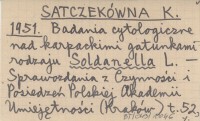 SATCZEKÓWNA K.
1951. Badania cytologiczne
nad karpackimi gatunkami
rodzaju Soldanella L. —
Sprawozdania z Czynności i
Posiedzeń Polskiej Akademii
Umiejętności (Kraków) t. 52,